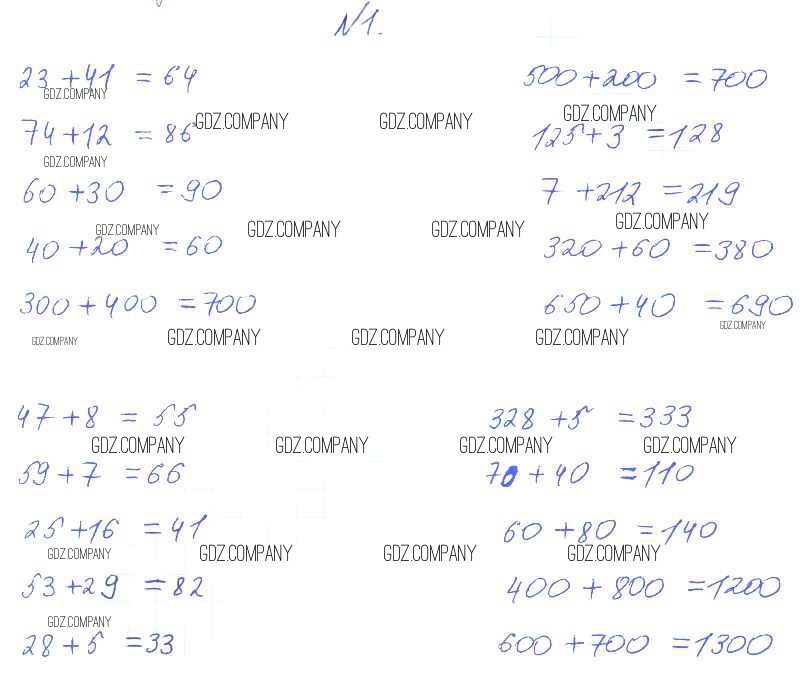 №1.
23 + 41 = 64 500 + 200 = 700
GDZ.COMPANY
GDZ.COMPANY GDZ.COMPANY GDZ.COMPANY
74 + 12 = 86 125 + 3 = 128
GDZ.COMPANY
60 + 30 = 90 7 + 212 = 219
GDZ.COMPANY GDZ.COMPANY GDZ.COMPANY GDZ.COMPANY
40 + 20 = 60 320 + 60 = 380
300 + 400 = 700 650 + 40 = 690
GDZ.COMPANY GDZ.COMPANY GDZ.COMPANY GDZ.COMPANY GDZ.COMPANY
47 + 8 = 55 328 + 5 = 333
GDZ.COMPANY GDZ.COMPANY GDZ.COMPANY GDZ.COMPANY
59 + 7 = 66 70 + 40 = 110
25 + 16 = 41 60 + 80 = 140
GDZ.COMPANY GDZ.COMPANY GDZ.COMPANY GDZ.COMPANY
53 + 29 = 82 400 + 800 = 1200
GDZ.COMPANY
28 + 5 = 33 600 + 700 = 1300